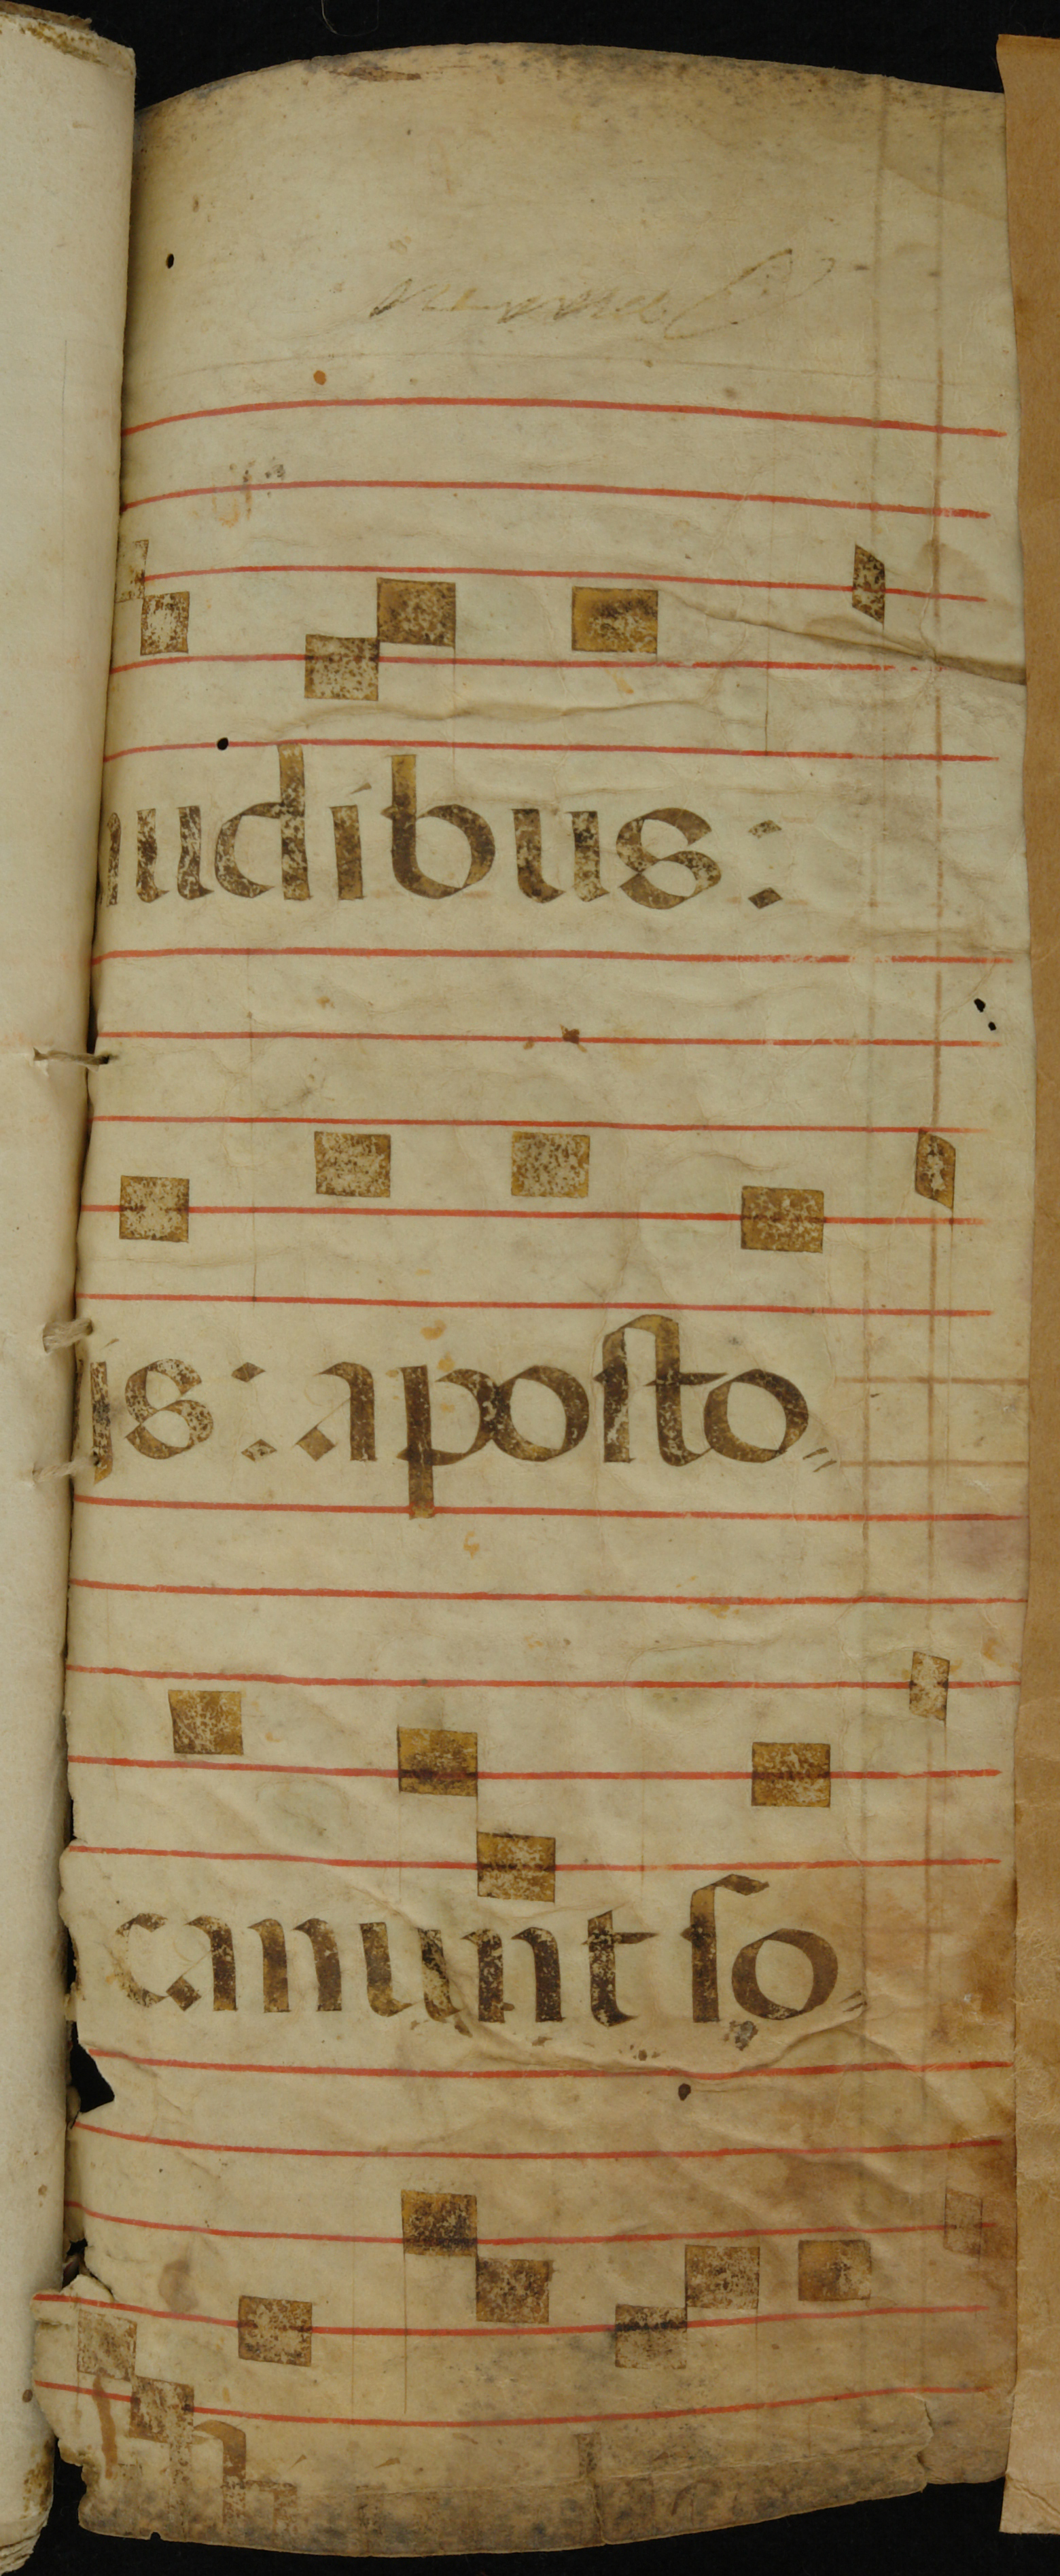 audibus:
js: aposto〃
canunt so〃